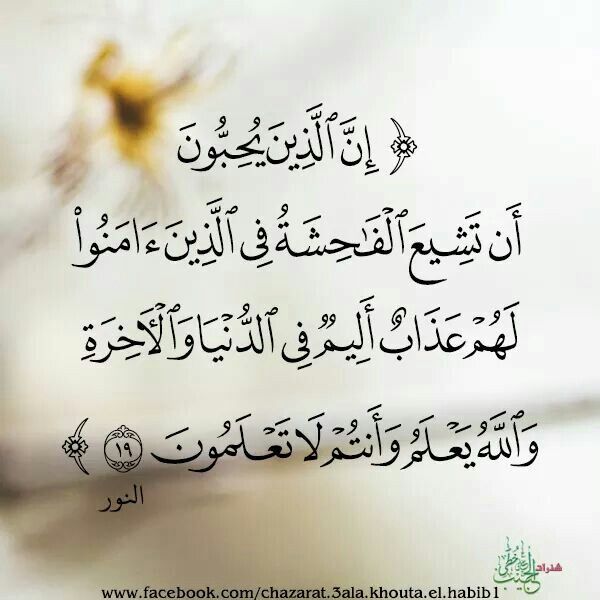 ﴿ إِنَّ ٱلَّذِينَ يُحِبُّونَ
أَن تَشِيعَ ٱلْفَـٰحِشَةُ فِى ٱلَّذِينَ ءَامَنُوا۟
لَهُمْ عَذَابٌ أَلِيمٌ فِى ٱلدُّنْيَا وَٱلْـَٔاخِرَةِ
وَٱللَّهُ يَعْلَمُ وَأَنتُمْ لَا تَعْلَمُونَ ١٩ ﴾
النور
شذرات على خطى الحبيب
www.facebook.com/chazarat.3ala.khouta.el.habib1